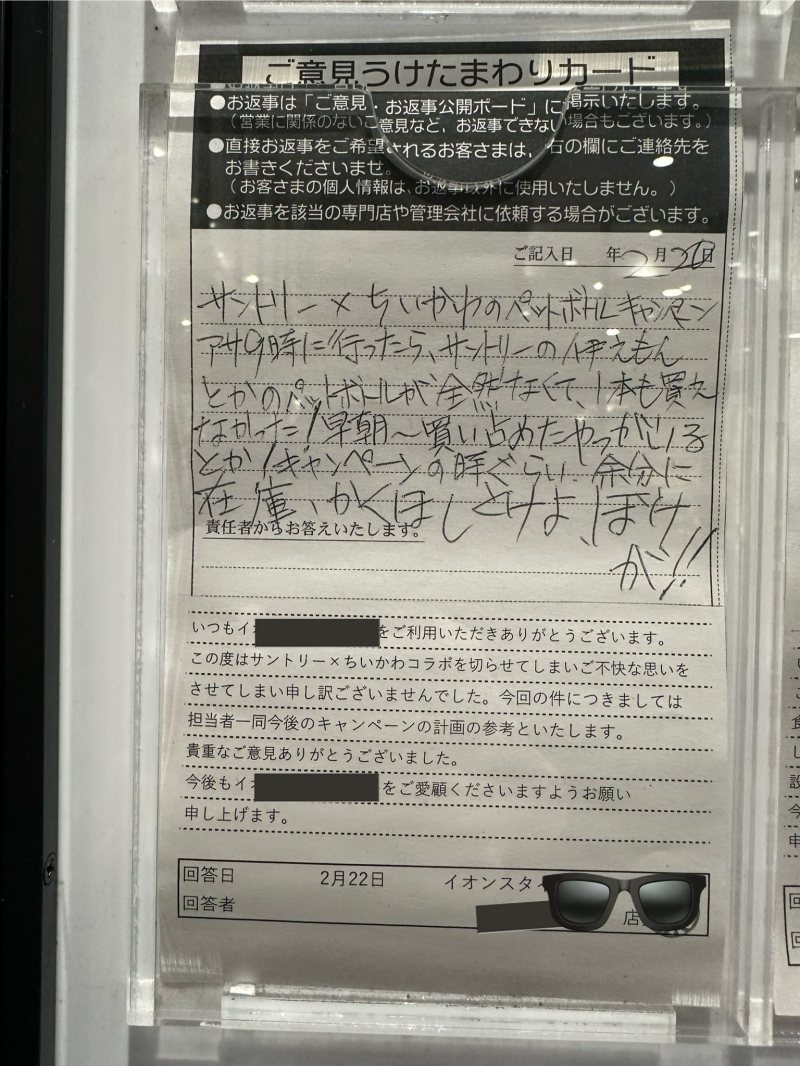 ご意見うけたまわりカード
●お返事は「ご意見・お返事公開ボード」に掲示いたします。
(営業に関係のないご意見など、お返事できない場合もございます。)
●直接お返事をご希望されるお客さまは、右の欄にご連絡先を
お書きくださいませ。
(お客さまの個人情報は、お返事以外に使用いたしません。)
●お返事を該当の専門店や管理会社に依頼する場合がございます。
ご記入日 年2月20日
サントリー×ちいかわのペットボトルキャンペーン
アサ9時に行ったら、サントリーの伊えもん
とかのペットボトルが全然なくて、1本も買え
なかった!早朝〜買い占めたやつがいる
とか!キャンペーンの時ぐらい、余分に
在庫、かくほしとけよ、ぼけ
が!!
責任者からお答えいたします。
いつもイオ をご利用いただきありがとうございます。
この度はサントリー×ちいかわコラボを切らせてしまいご不快な思いを
させてしまい申し訳ございませんでした。今回の件につきましては
担当者一同今後のキャンペーンの計画の参考といたします。
貴重なご意見ありがとうございました。
今後もイオ をご愛顧くださいますようお願い
申し上げます。
回答日 2月22日 イオンスタイ
回答者 店